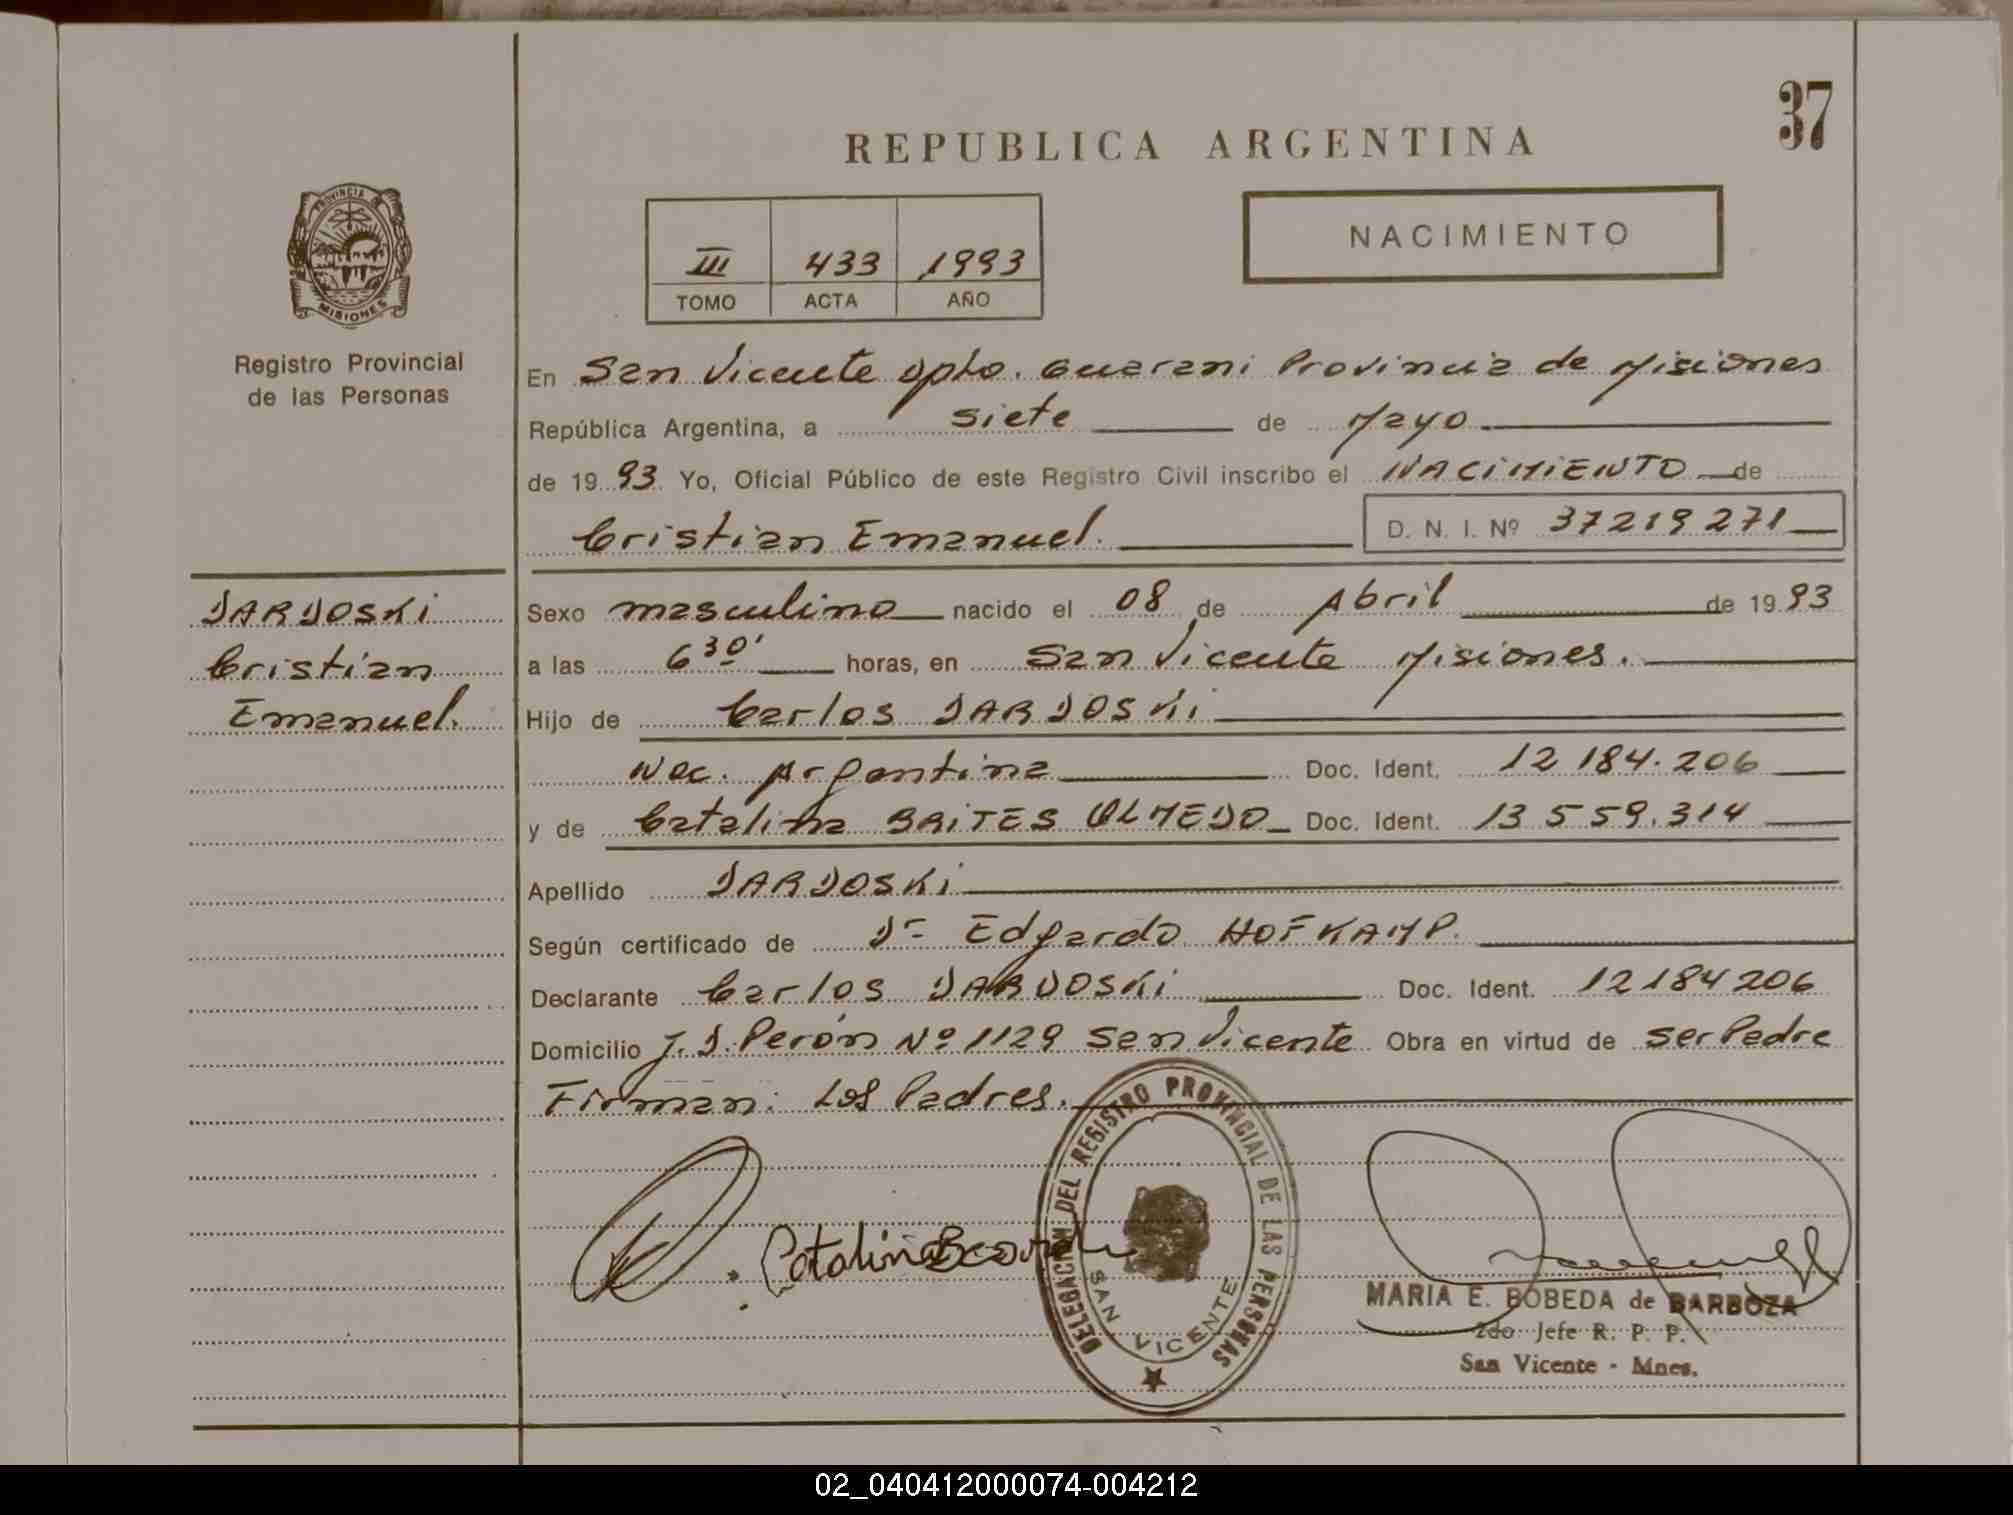 37
REPUBLICA ARGENTINA
PROVINCIA
MISIONES
Registro Provincial
de las Personas
III 433 1993
TOMO ACTA AÑO
NACIMIENTO
En San Vicente Dpto. Guarani Provincia de Misiones
República Argentina, a siete de Mayo
de 19 93 Yo, Oficial Público de este Registro Civil inscribo el NACIMIENTO de
Cristian Emanuel. D. N. I. Nº 37219271
DARDOSKi
Cristian
Emanuel.
Sexo masculino nacido el 08 de Abril de 19 93
a las 6 30' horas, en San Vicente Misiones.
Hijo de Carlos DARDOSKi
Nac. Argentina Doc. Ident. 12 184.206
y de Catalina BRITES OLMEDO Doc. Ident. 13 559.314
Apellido DARDOSKi
Según certificado de Dr Edgardo HOFKAMP.
Declarante Carlos DARDOSKi Doc. Ident. 12184206
Domicilio J. D. Perón Nº 1129 San Vicente Obra en virtud de ser Padre
Firman: Los Padres.
Catalina
DELEGACION DEL REGISTRO PROVINCIAL DE LAS PERSONAS
SAN VICENTE
MARIA E. BOBEDA de BARBOZA
2do Jefe R. P. P.
San Vicente - Mnes.
02_040412000074-004212